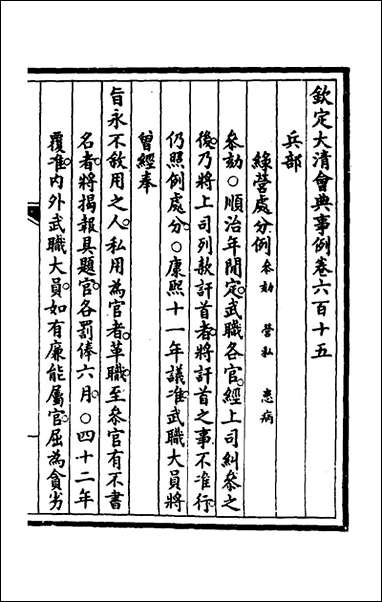 欽定大清會典事例卷六百十五
兵部
綠營處分例 參劾 營私 患病
參劾○順治年閒定武職各官經上司糾參之
後乃將上司列款訐首者將訐首之事不准行
仍照例處分○康熙十一年議准武職大員將
曾經奉
旨永不敘用之人私用為官者革職至參官有不書
名者將揭報具題官各罰俸六月○四十二年
覆准內外武職大員如有廉能屬官屈為貪劣